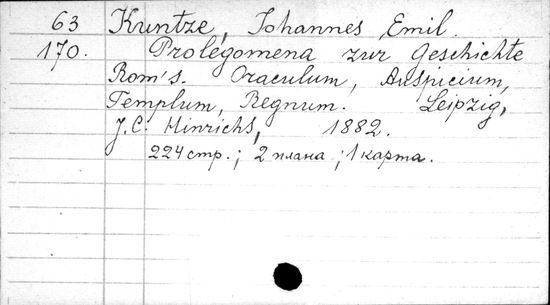 63 Kuntze, Johannes Emil.
170. Prolegomena zur Geschichte
Rom's. Oraculum, Auspicium,
Templum, Regnum. Leipzig,
J.C. Hinrichs, 1882.
224 стр.; 2 плана; 1 карта.